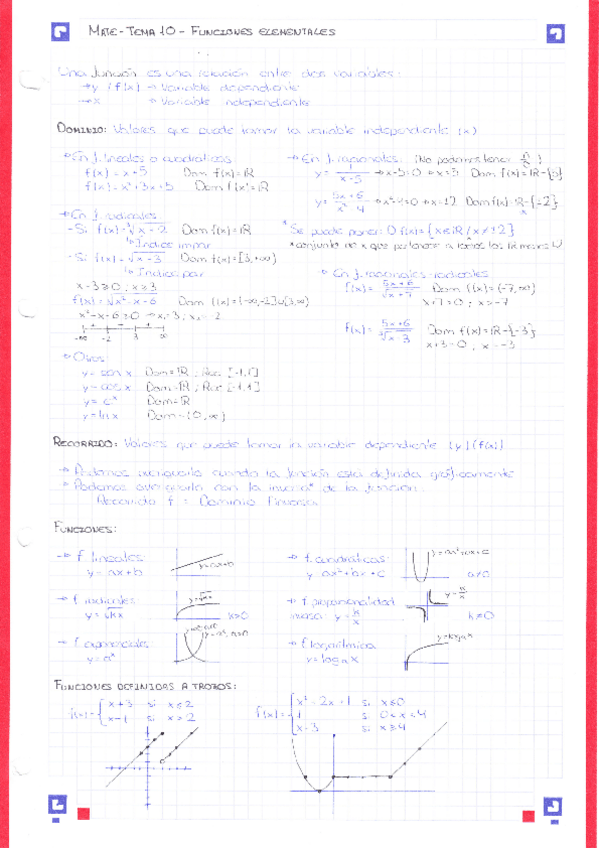 MATE - TEMA 10 - FUNCIONES ELEMENTALES
Una función es una relación entre dos variables:
→ y / f(x) → Variable dependiente
→ x → Variable independiente
DOMINIO: Valores que puede tomar la variable independiente (x)
En f. lineales o cuadráticas:
f(x) = x+5 Dom f(x)=ℝ
f(x) = x²+3x+5 Dom f(x)=ℝ
En f. racionales: (No podemos tener
y = 1/(x-5) → x-5=0 → x=5 Dom f(x)=ℝ-{5}
y = (5x+6)/(x²-4) → x²-4=0 → x=±2
En f. radicales:
- Si f(x) = Dom f(x)=ℝ
↳ Índice impar
- Si f(x) = √(x-3) Dom f(x)=[3,+∞)
↳ Índice par
x-3≥0 ; x≥3
f(x) = √(x²-x-6) Dom f(x)=(-∞,-2]∪[3,∞)
x²-x-6≥0 → x=3; x=-2
-∞ -2 3 ∞
* Se puede poner: D f(x)={x∈ℝ/x≠±2}
En f. racionales-radicales
f(x) = (5x+6)/√(x+7) Dom f(x)=(-7,∞)
x+7=0 ; x>-7
f(x) = Dom f(x)=ℝ-{-3}
x+3=0 ; x=-3
Otros:
y = sen x Dom=ℝ ; Rec [-1,1]
y = cos x Dom=ℝ ; Rec [-1,1]
Dom=ℝ
y = ln x Dom=(0,∞)
RECORRIDO: Valores que puede tomar la variable dependiente (y)(f(x))
→ Podemos averiguarlo cuando la función está definida gráficamente
→ Podemos averiguarlo con la inversa de la función.
Recorrido f = Dominio f inversa
FUNCIONES:
→ f. lineales:
y = ax+b
y=ax+b
→ f. cuadráticas:
y = ax²+bx+c
y=ax²+bx+c
a≠0
→ f. radicales:
y = √kx
x≥0
→ f. proporcionalidad
inversa: y = k/x
y=k/x
k≠0
→ f. exponenciales:
y = aˣ
→ f. logarítmica:
y = logₐ x
FUNCIONES DEFINIDAS A TROZOS:
f(x) = { x+3 si x≤2
x-1 si x>2
f(x) = { x²-2x+1 si x≤0
1 si 0<x<4
x-3 si x≥4